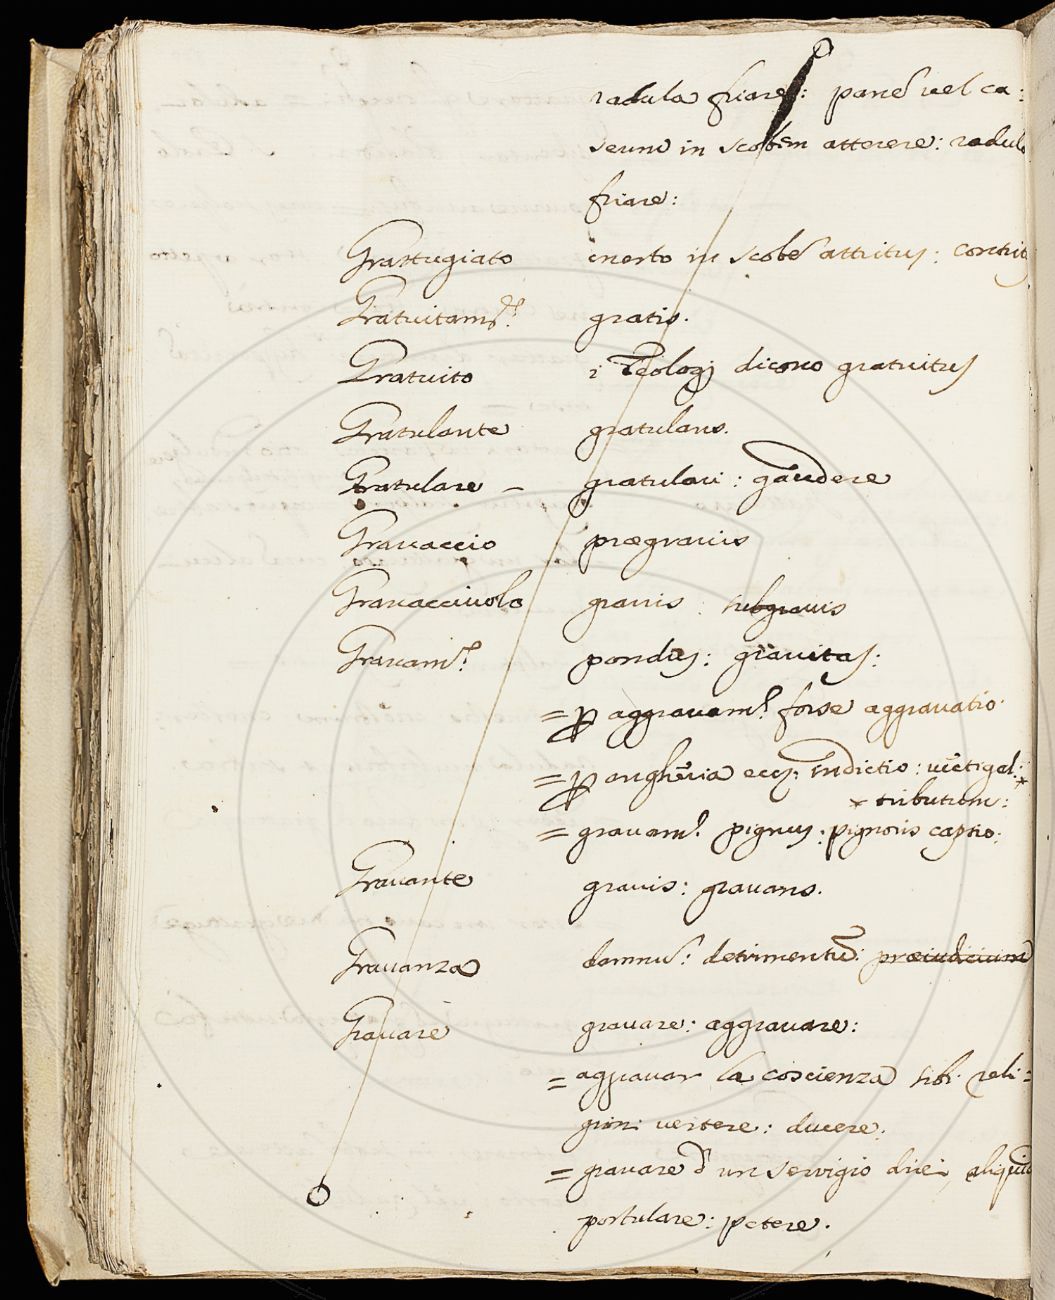 radula friare: panē vel ca:
seum in scobem atterere: radula
friare:
Grattugiato inerto in scobē attritus: contrit
Gratuitamte gratis.
Gratuito i Teologi dicono gratuitus
Gratulante gratulans.
Gratulare – gratulari: gaudere
Gravaccio prægravis
Gravacciuolo gravis: subgravis
Gravamto pondus: gravitas:
= p aggravamto forse aggravatio.
= p angheria ecc; indictio: vectigal: *
* tributum:
= gravamto pignus: pignoris captio.
Gravante gravis: gravans.
Gravanza damnū: detrimentū: præiudicium
Gravare gravare: aggravare:
= aggravar la coscienza sibi reli=
gioni vertere: ducere.
= gravare d un servigio direi, aliquid
postulare: petere.